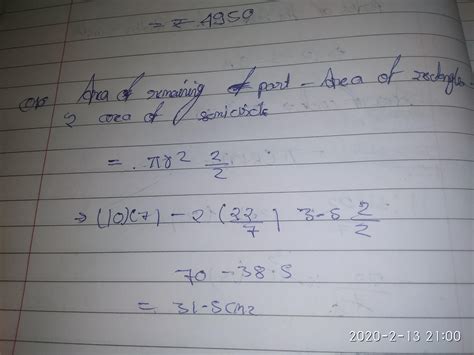 = ₹ 4950
Area of remaining part - Area of rectangle -
2 area of semicircle
= πr² 2/2
→ (10)(7) - 2 (22/7) 3-5 2/2
70 - 38.5
= 31-5cm2
2020-2-13 21:00